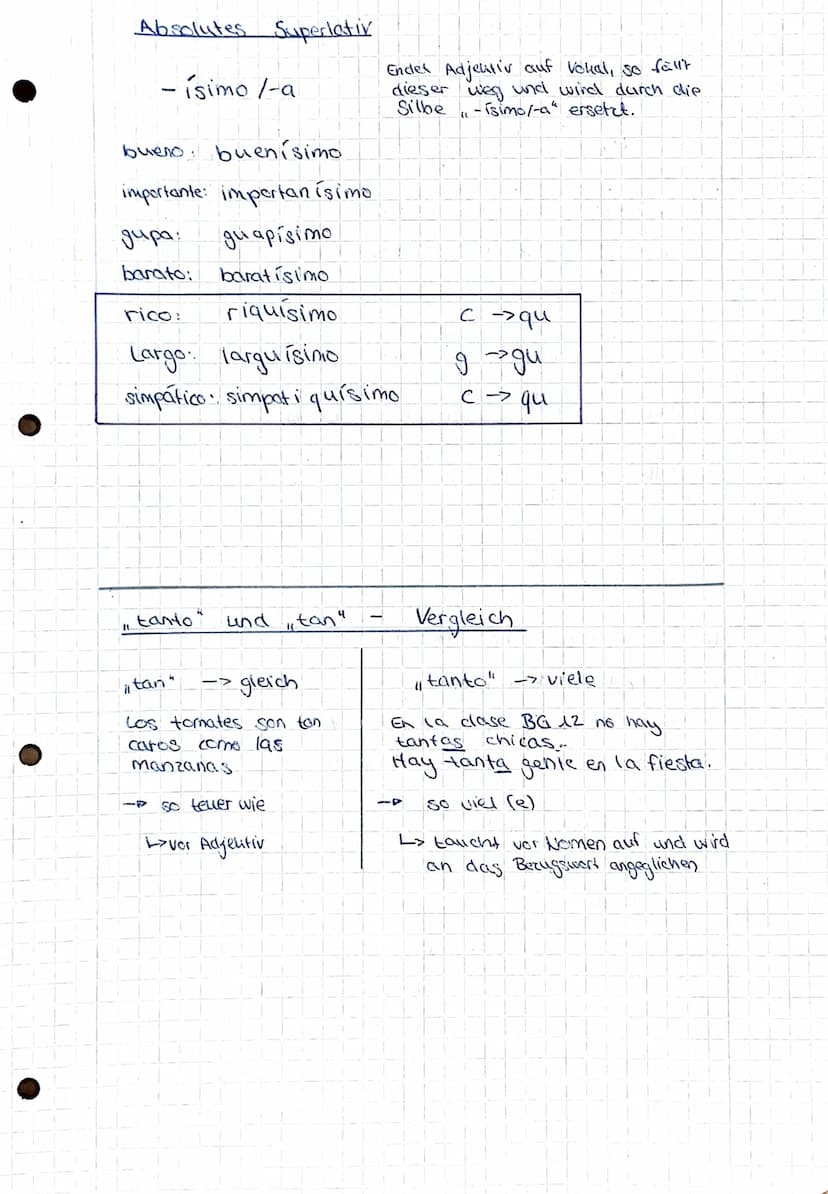 Absolutes Superlativ
-ísimo/-a
Endet Adjektiv auf Vokal, so fällt
dieser weg und wird durch die
Silbe „-ísimo/-a“ ersetzt.
bueno: buenísimo
importante: importanísimo
gupa: guapísimo
barato: baratísimo
rico: riquísimo c ->qu
Largo: larguísino g ->gu
simpático: simpatiquísimo c -> qu
„tanto“ und „tan“ - Vergleich
„tan“ -> gleich
Los tomates son tan
caros como las
manzanas
-> so teuer wie
↳vor Adjektiv
„tanto“ -> viele
En la clase BG 12 no hay
tantas chicas..
Hay tanta gente en la fiesta.
-> so viel (e)
↳ taucht vor Nomen auf und wird
an das Bezugswort angeglichen